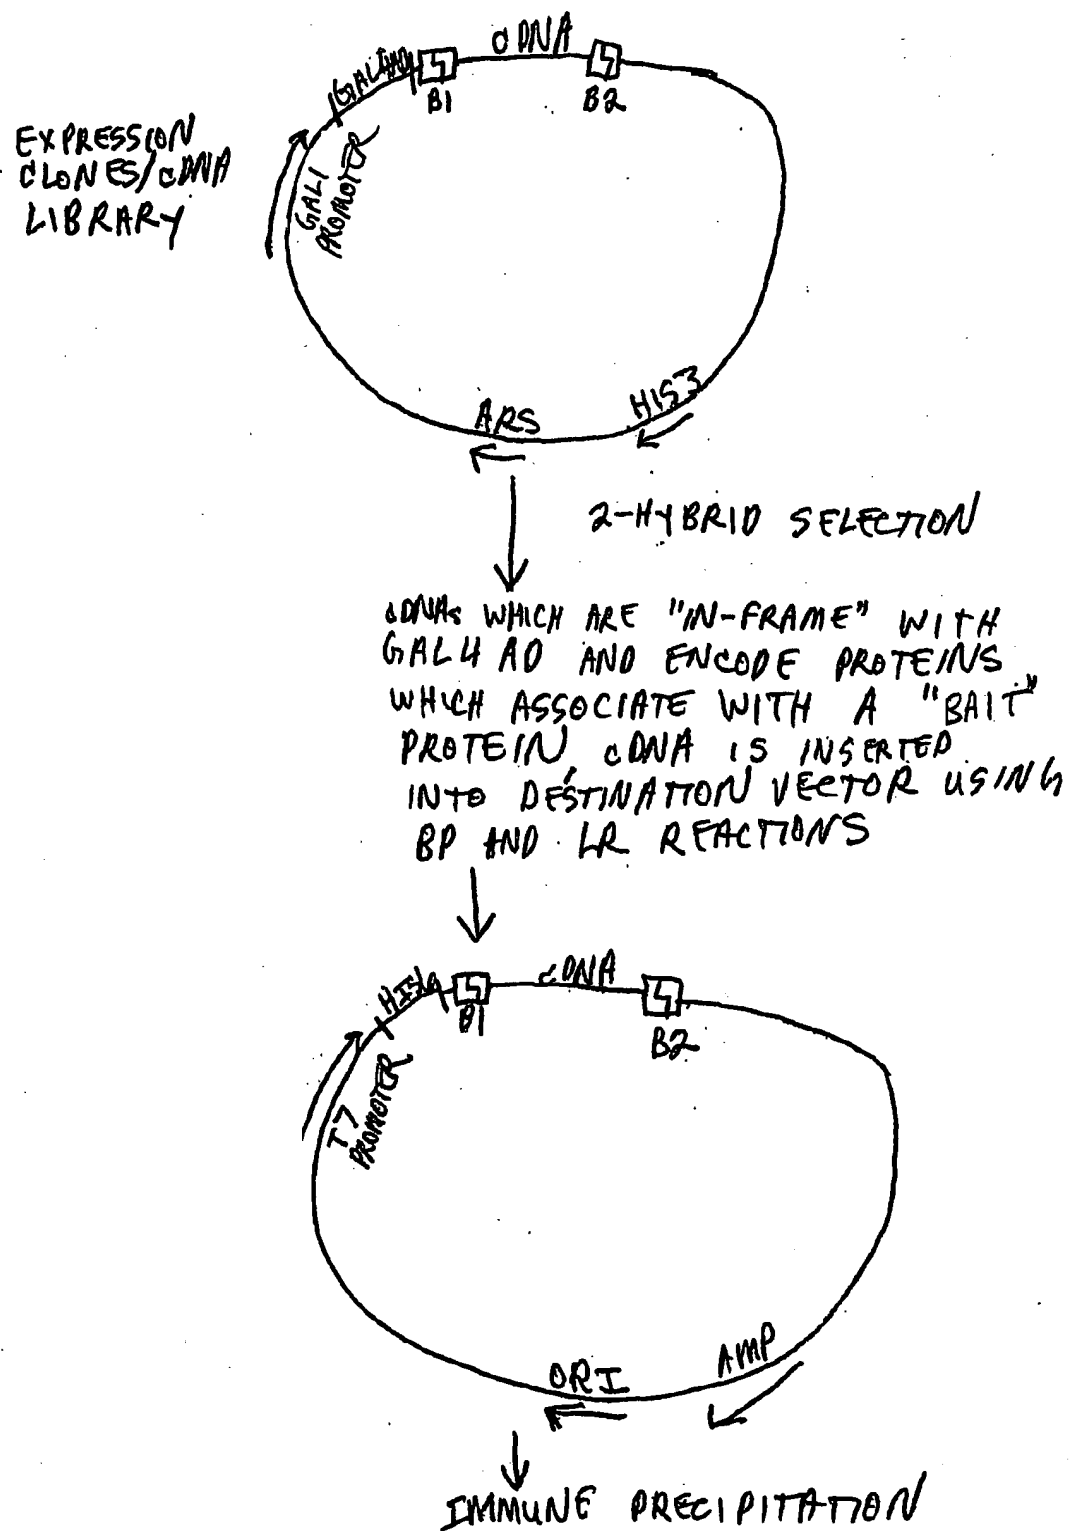 cDNA
GAL4AD
B1
B2
EXPRESSION
CLONES/cDNA
LIBRARY
GAL1
PROMOTER
HIS3
ARS
2-HYBRID SELECTION
cDNAs WHICH ARE "IN-FRAME" WITH
GAL4 AD AND ENCODE PROTEINS
WHICH ASSOCIATE WITH A "BAIT"
PROTEIN, cDNA IS INSERTED
INTO DESTINATION VECTOR USING
BP AND LR REACTIONS
cDNA
B1
B2
T7
PROMOTER
ORI
AMP
IMMUNE PRECIPITATION